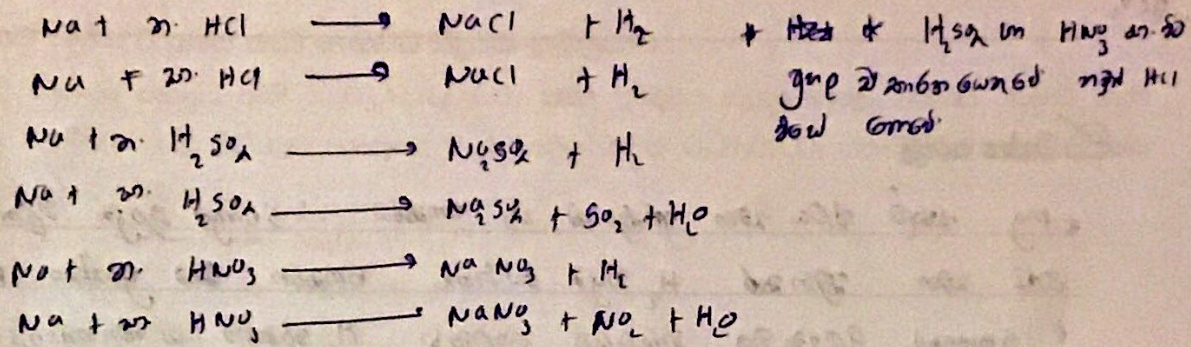 Na + ත. HCl ⟶ NaCl + H₂
Na + සා. HCl ⟶ NaCl + H₂
Na + ත. H₂SO₄ ⟶ Na₂SO₄ + H₂
Na + සා. H₂SO₄ ⟶ Na₂SO₄ + SO₂ + H₂O
Na + ත. HNO₃ ⟶ NaNO₃ + H₂
Na + සා HNO₃ ⟶ NaNO₃ + NO₂ + H₂O
* H₂SO₄ හා HNO₃
නමුත් HCl